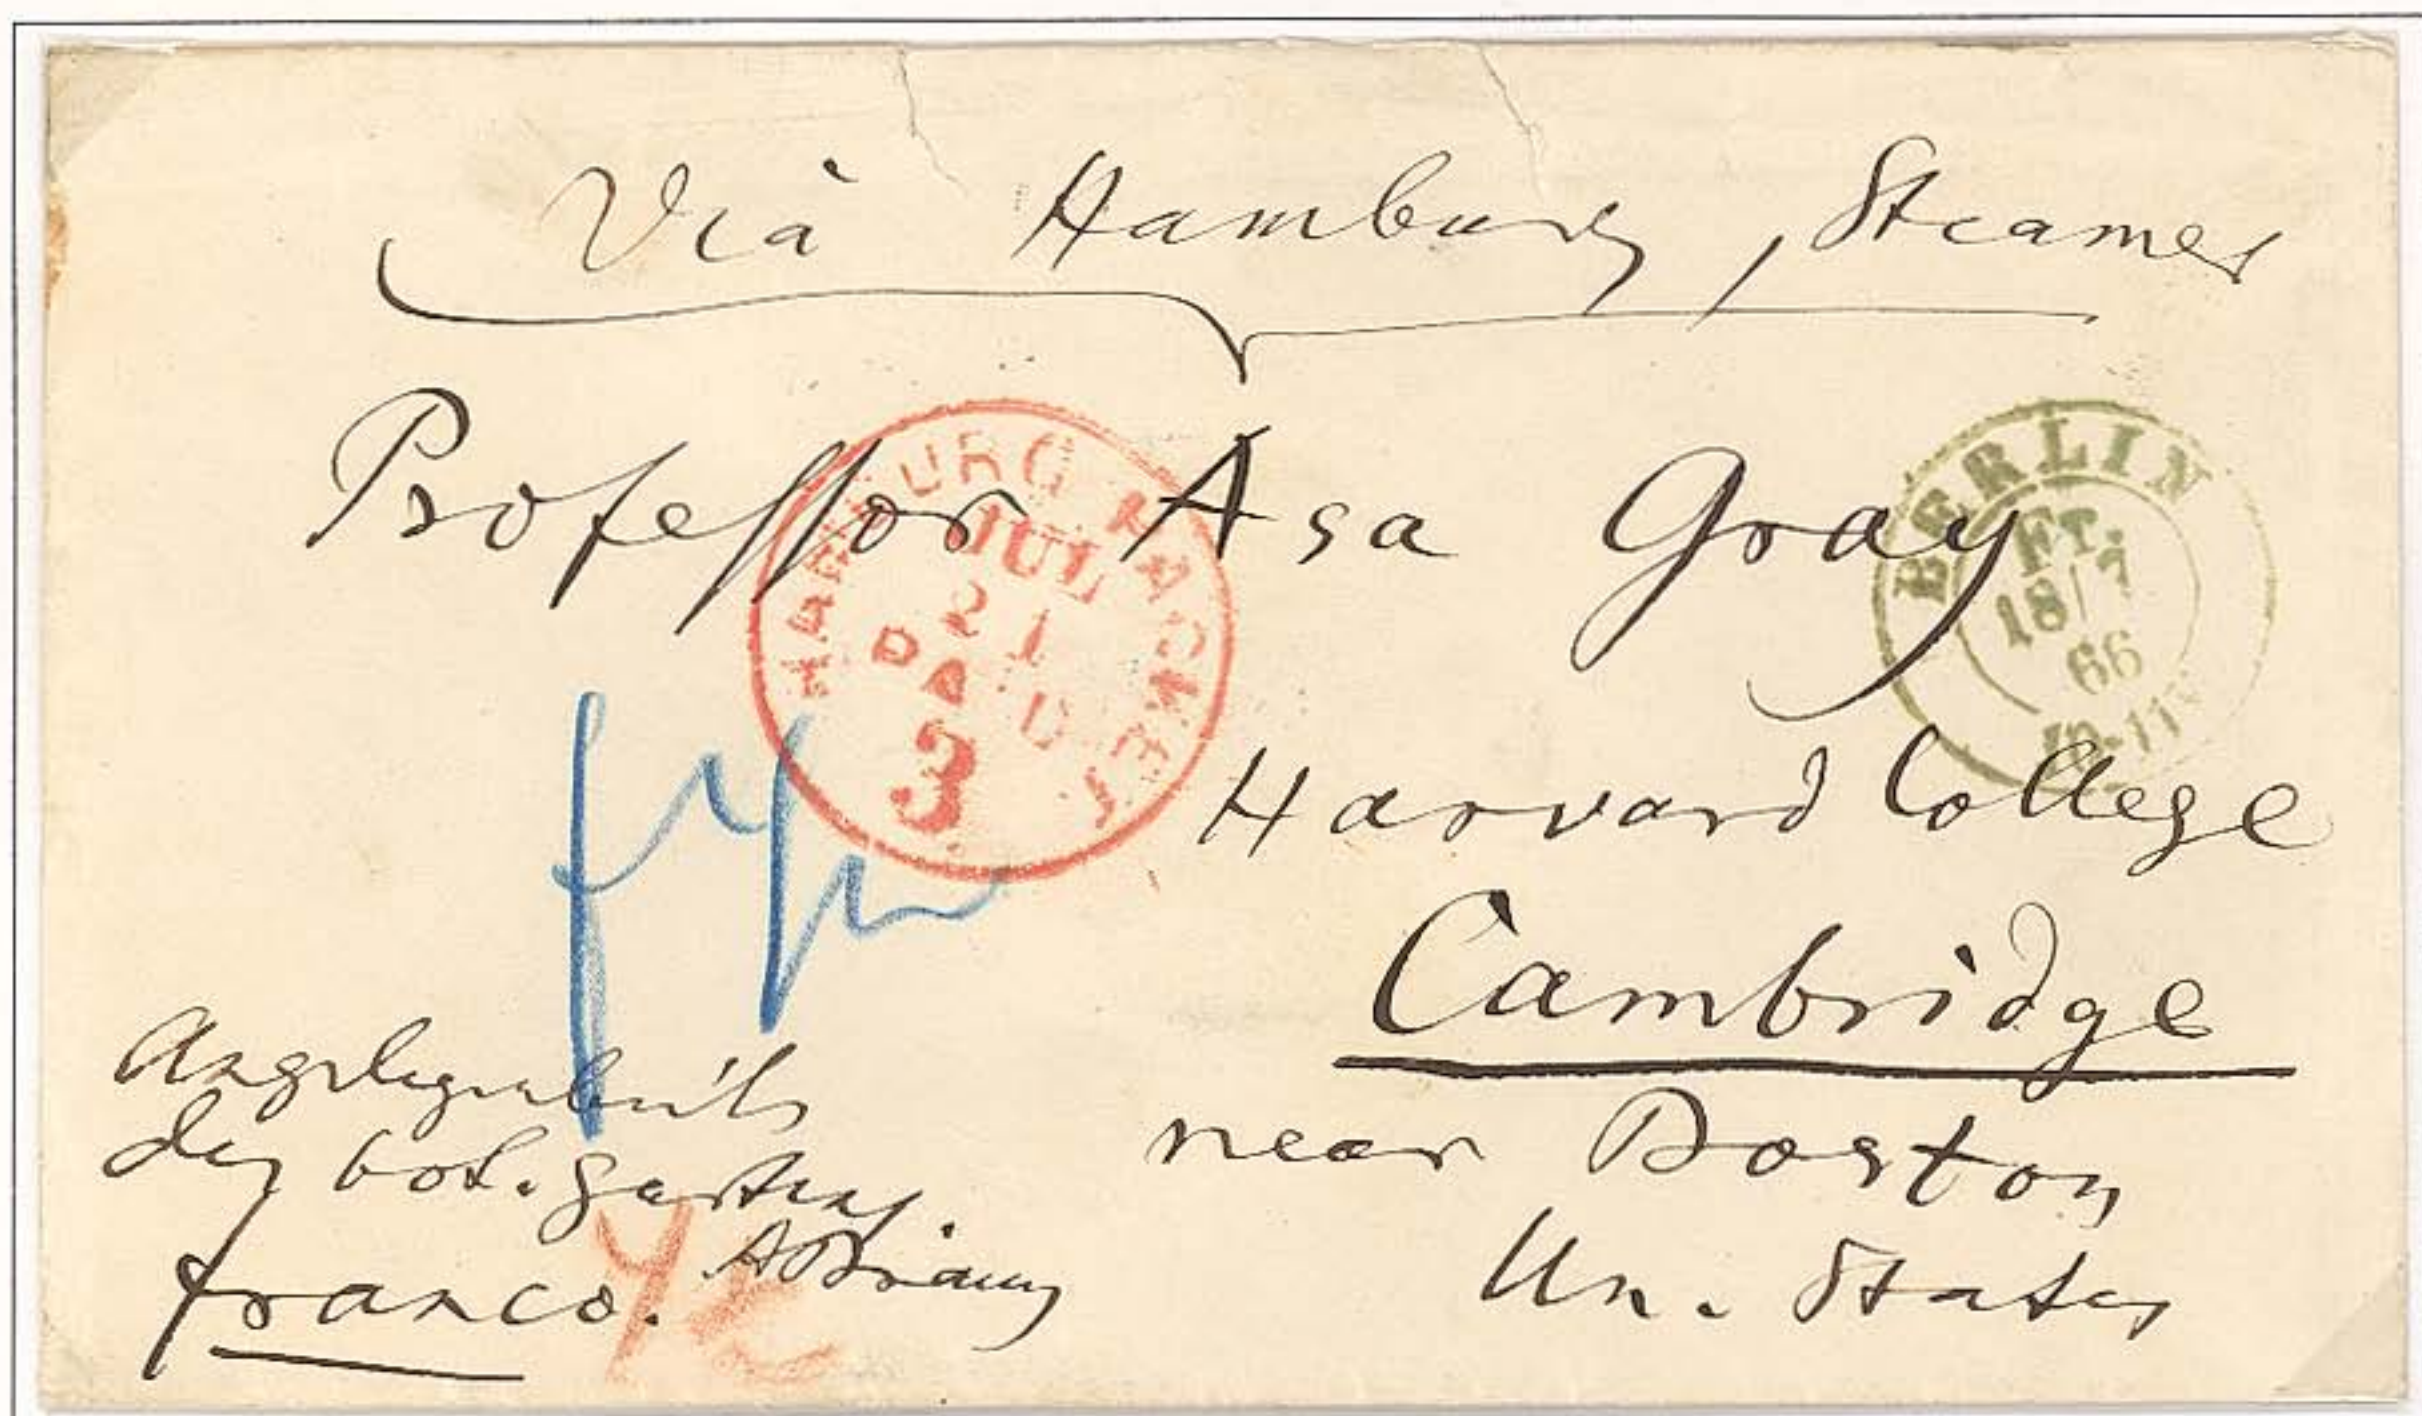 Vià Hamburg, Steamer
Professor Asa Gray
HAMBURG PACKET
JUL
21
PAID
3
BERLIN
Fr.
18/7
66
10-11V
Harvard College
Cambridge
near Boston
Un. States
Angelegenheit
des bot. Gartens.
ABraun
franco.